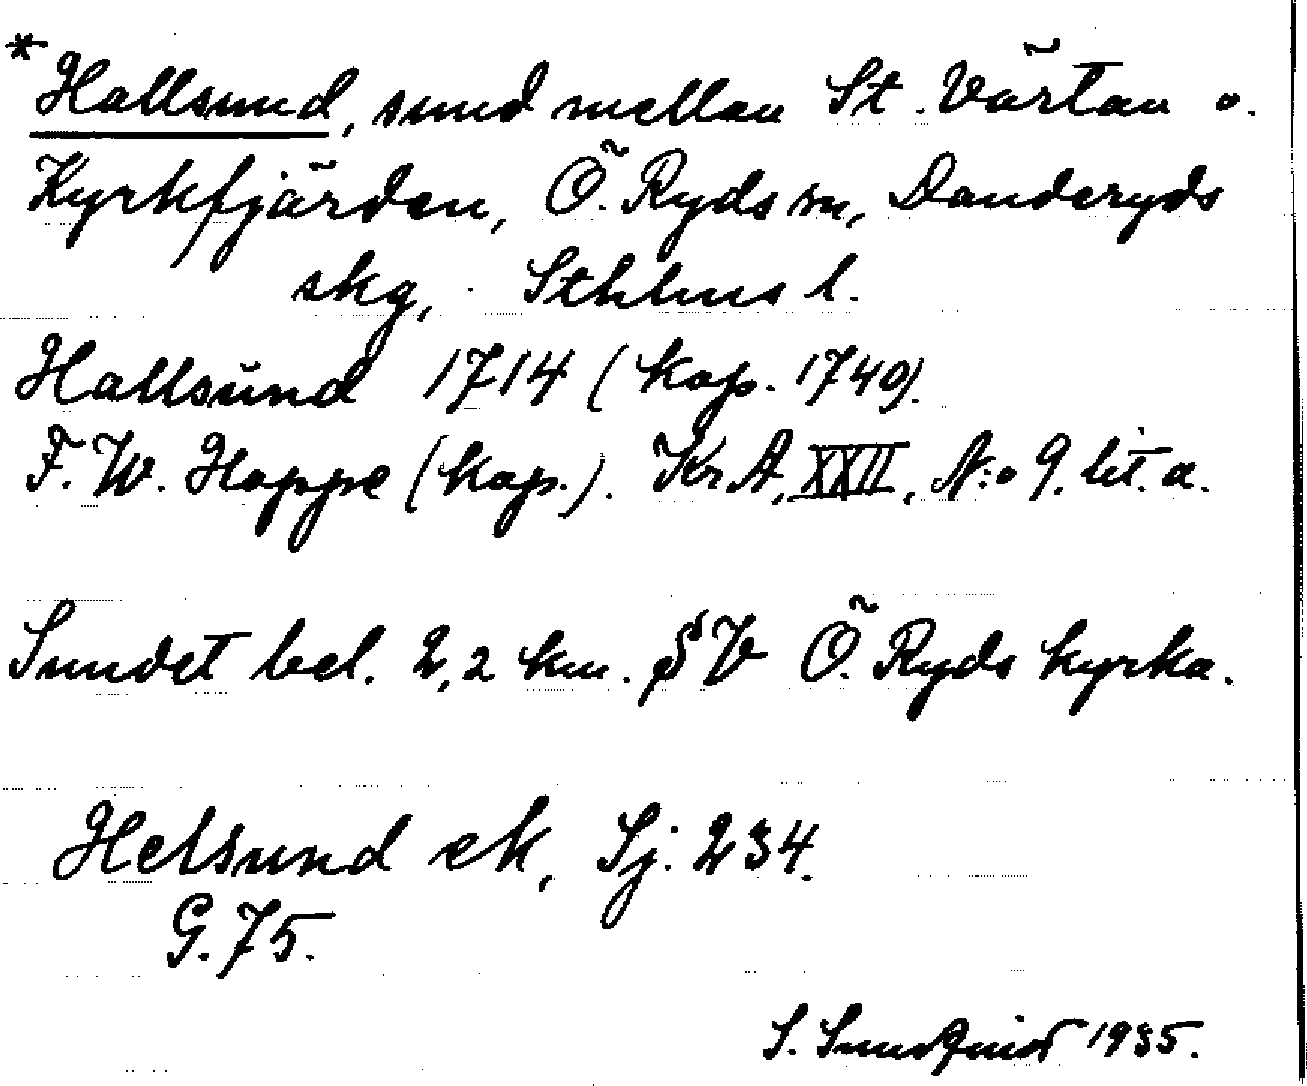 *Hallsund, sund mellan St. Värtan o.
Kyrkfjärden, Ö. Ryds sn, Danderyds
skg, Sthlms l.
Hallsund 1714 (kop. 1740).
F. W. Hoppe (kop.). KrA, XXII, N:o 9. lit. a.
Sundet bel. 2,2 km. SV Ö. Ryds kyrka.
Helsund ek, Sj: 234.
G. 75.
S. Sundquist 1935.